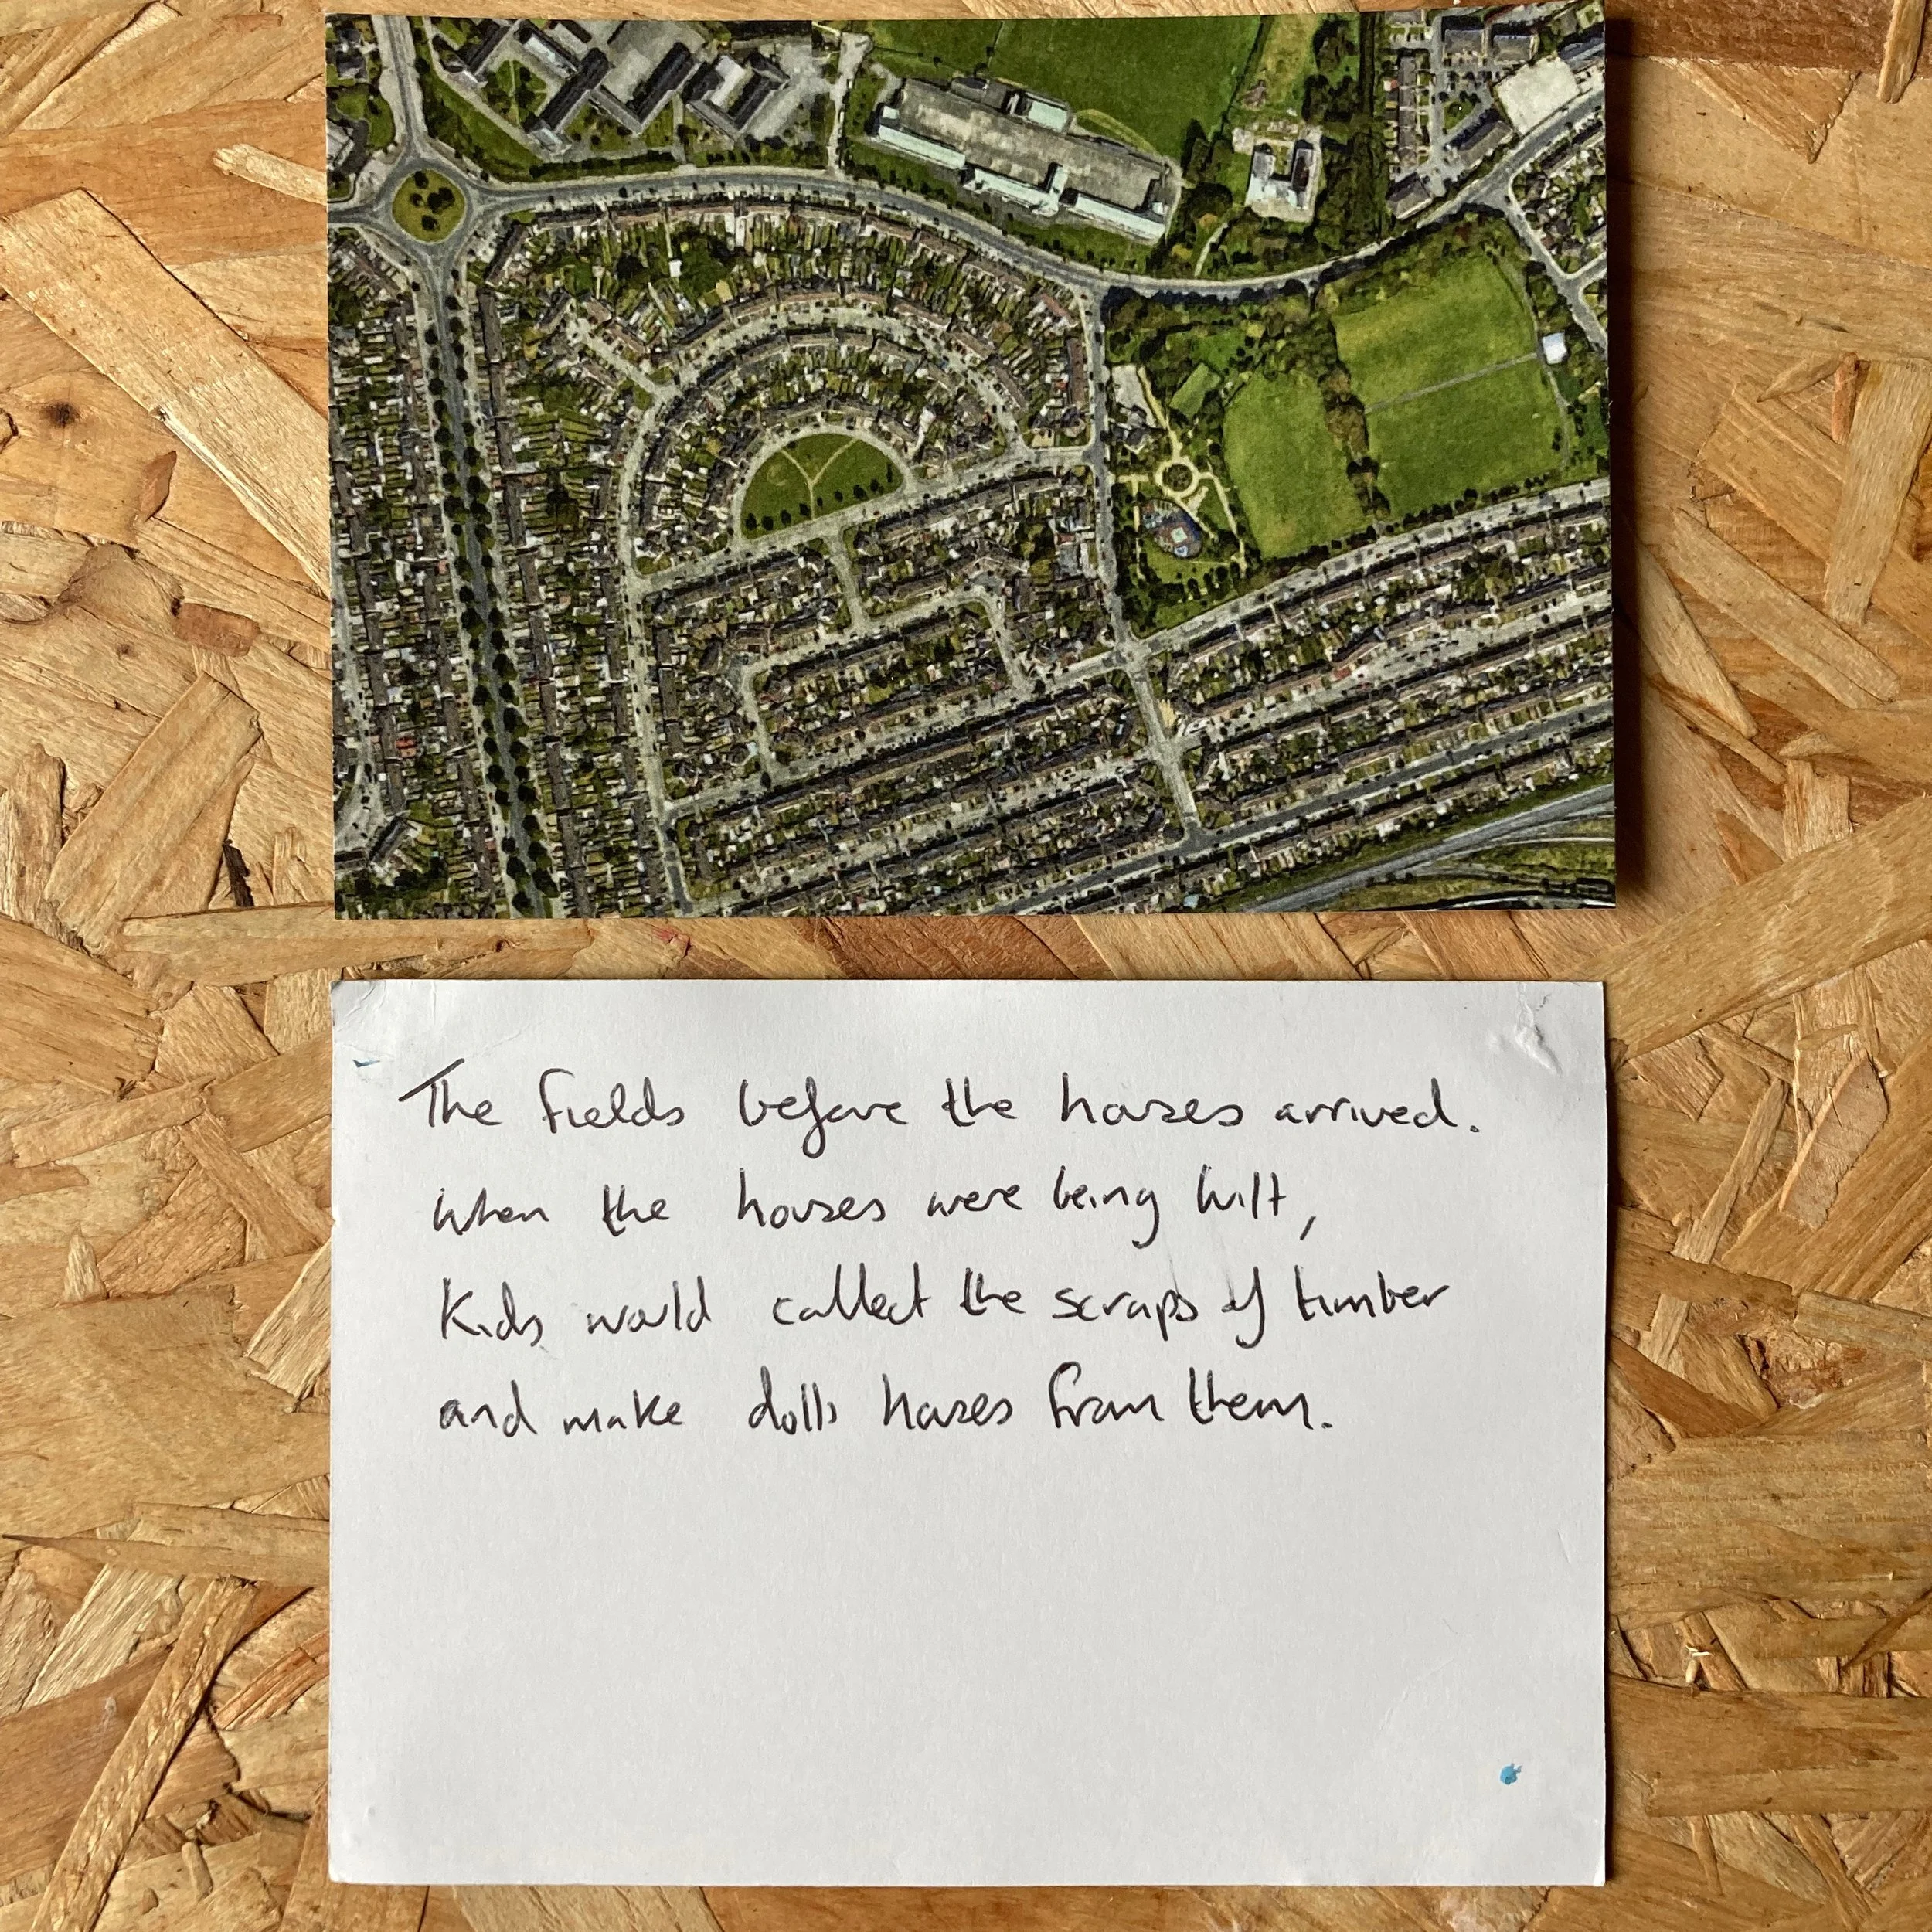 The fields before the houses arrived.
When the houses were being built,
Kids would collect the scraps of timber
and make dolls houses from them.